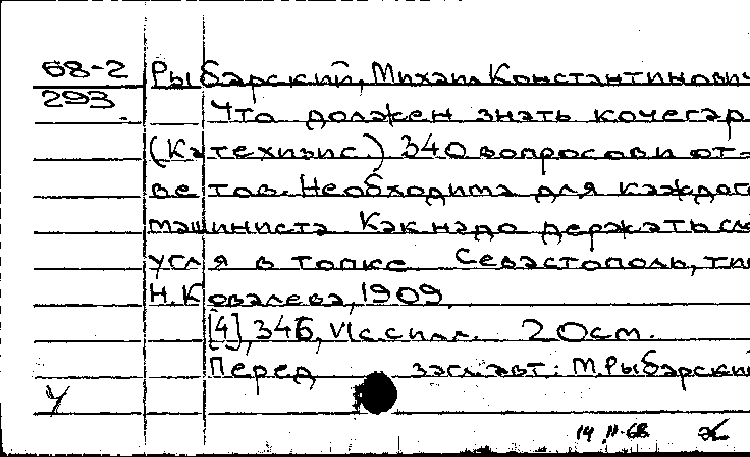 68-2 Рыбарский, Михаил Константинович
293 Что должен знать кочегар
(Катехизис.) 340 вопросов и от-
ветов. Необходима для каждог
машиниста Как надо держать сл
угля в топке Севастополь, тип
Н. Ковалева, 1909.
[4], 346, VI с с илл. 20 см.
Перед загл. авт.: М. Рыбарский
14 II-68